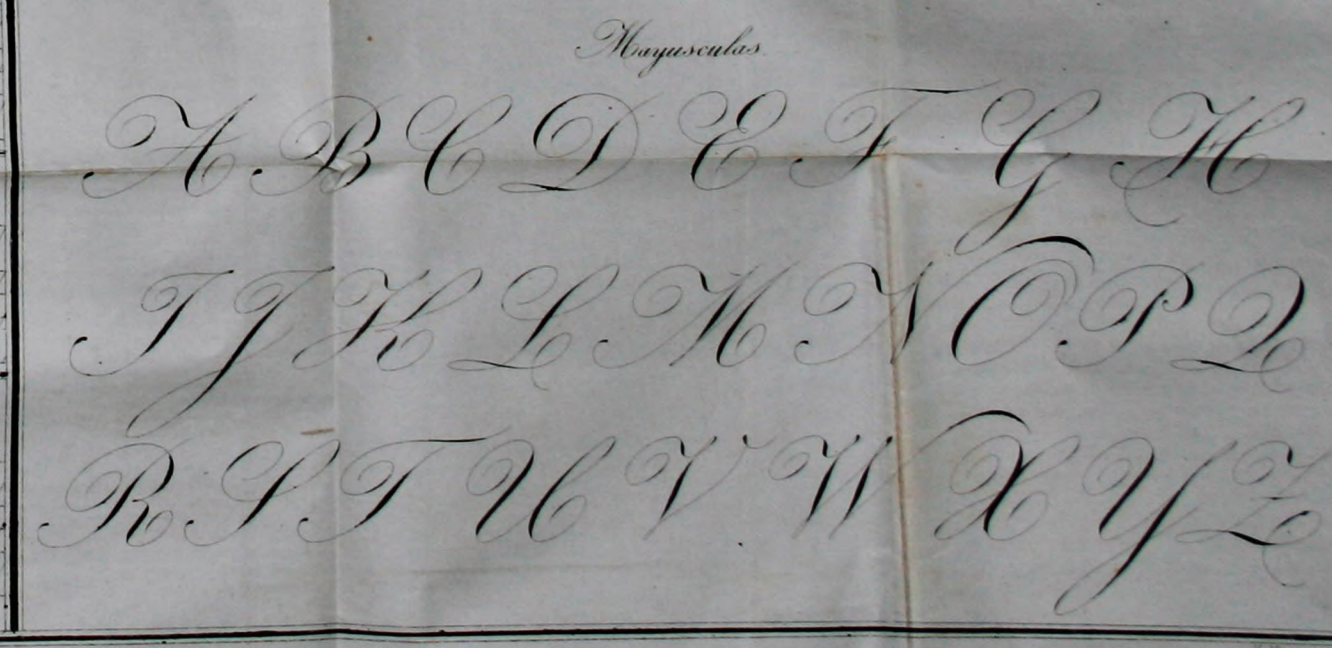 Mayusculas.
A B C D E F G H
I J K L M N O P Q
R S T U V W X Y Z